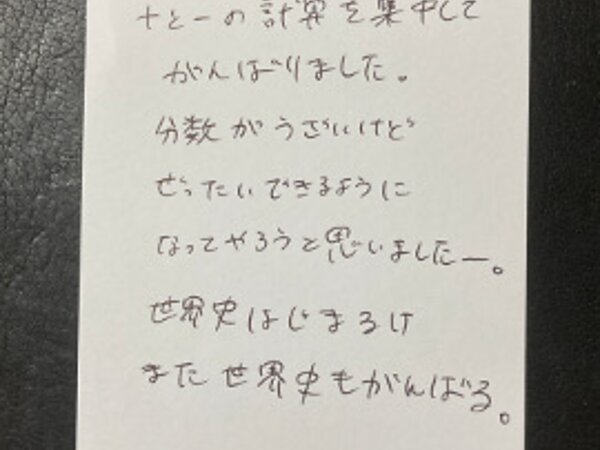 +と-の計算を集中して
がんばりました。
分数がうざいけど
ぜったいできるように
なってやろうと思いましたー。
世界史はじまるけ
また世界史もがんばる。